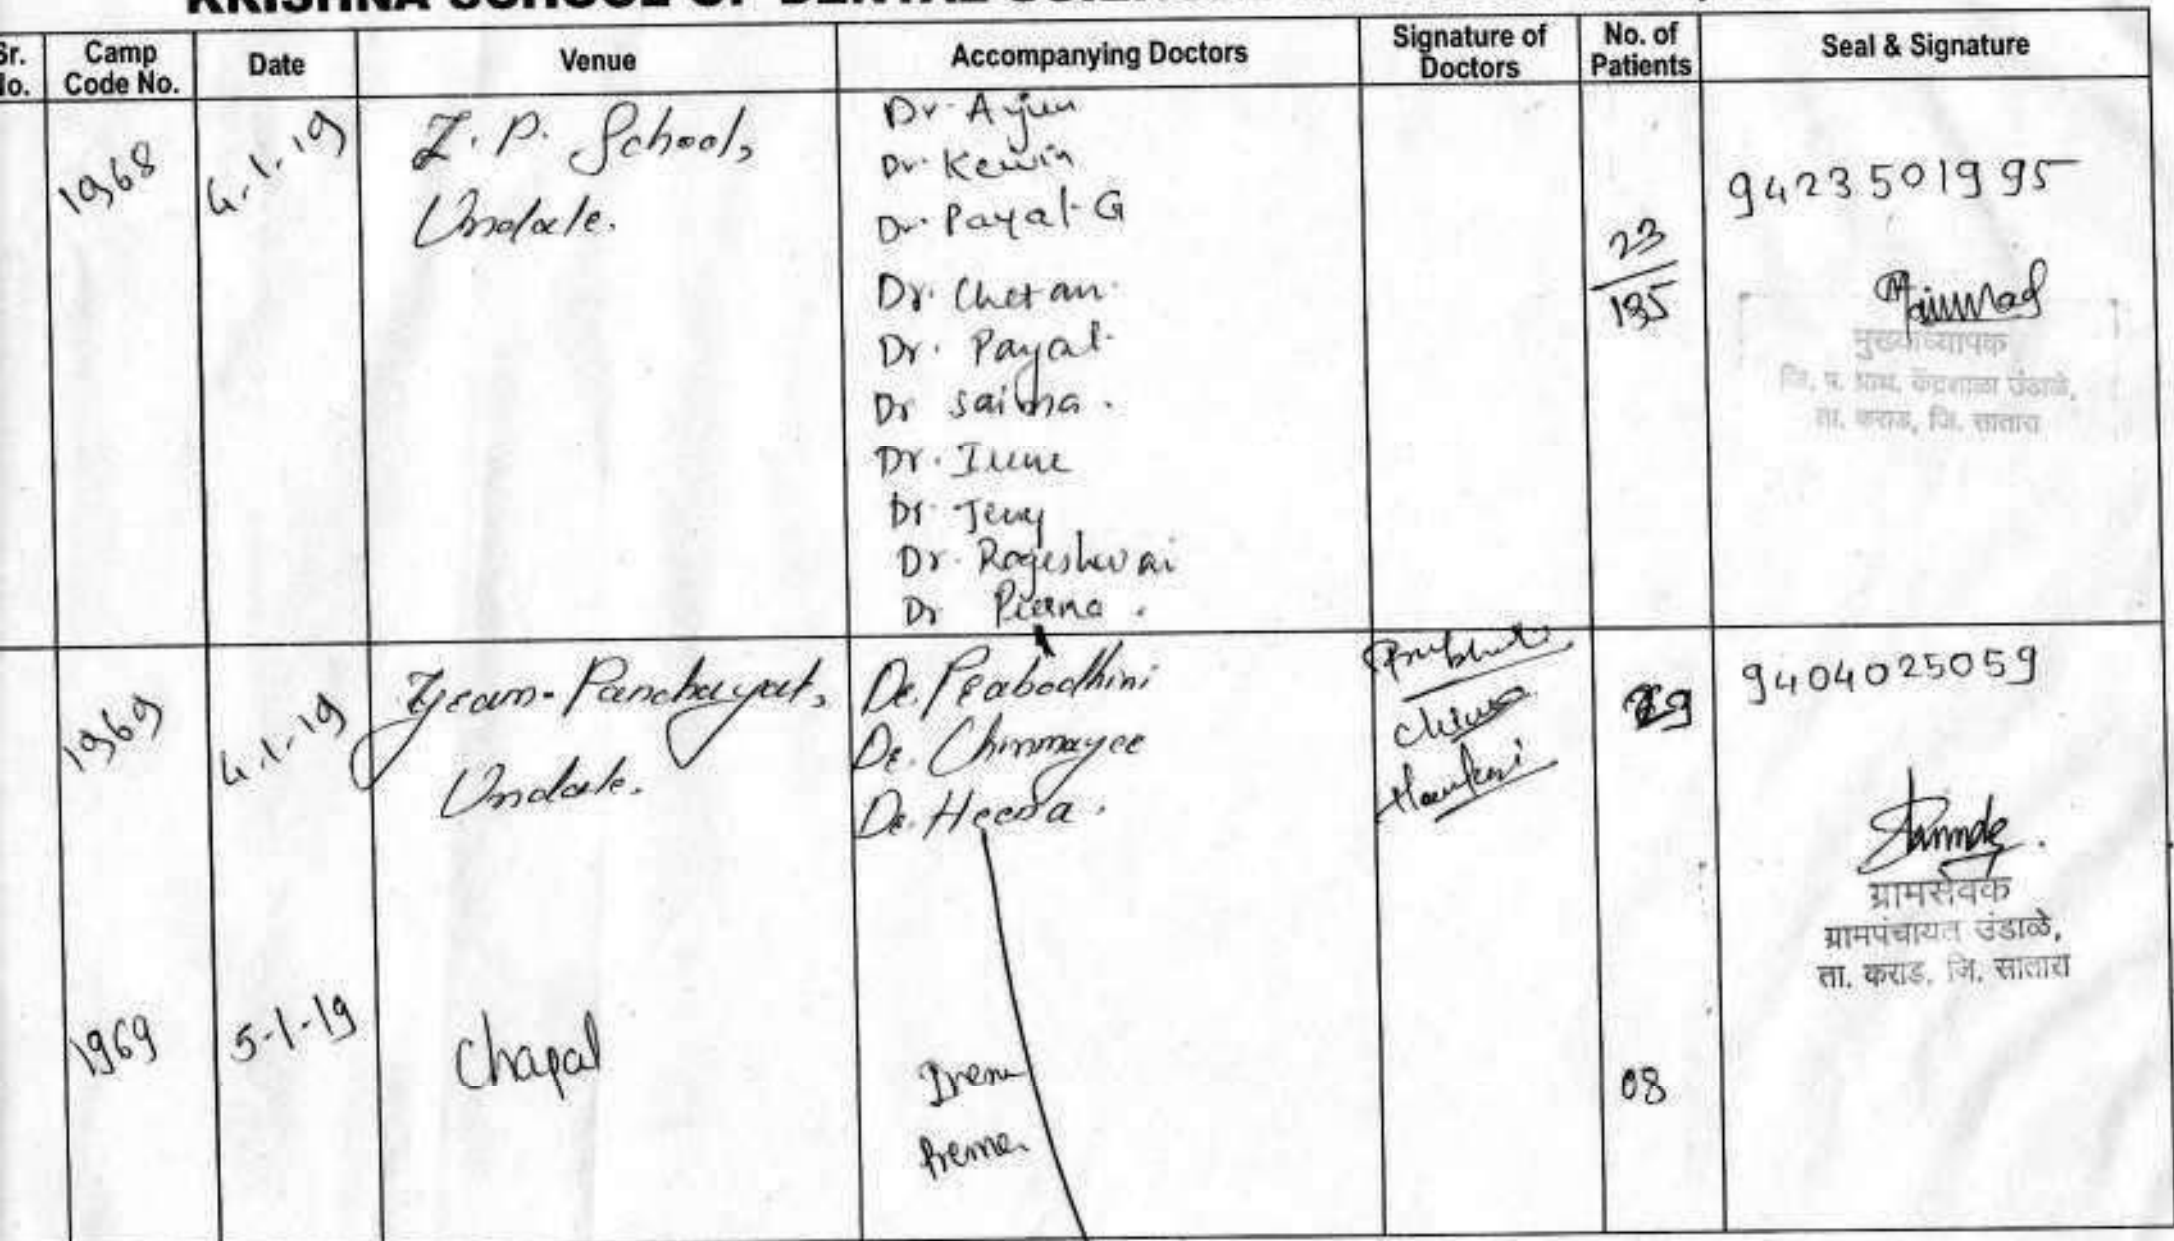 KRISHNA SCHOOL OF DENTAL
Sr. No.
Camp Code No.
Date
Venue
Accompanying Doctors
Signature of Doctors
No. of Patients
Seal & Signature
1968
4.1.19
Z. P. School,
Undale.
Dr. Arjun
Dr. Kewin
Dr. Payal G
Dr. Chetan
Dr. Payal
Dr Saima.
Dr. Irene
Dr. Jerry
Dr. Rageshwari
Dr Prerna.
23
135
9423501995
मुख्याध्यापक
जि. प. प्राथ. केंद्रशाळा उंडाळे,
ता. कराड, जि. सातारा
1969
4.1.19
Gram-Panchayat,
Undale.
Dr. Prabodhini
Dr. Chinmayee
Dr. Heena.
29
9404025059
ग्रामसेवक
ग्रामपंचायत उंडाळे,
ता. कराड, जि. सातारा
1969
5-1-19
Chapal
Irene
Prerna
08